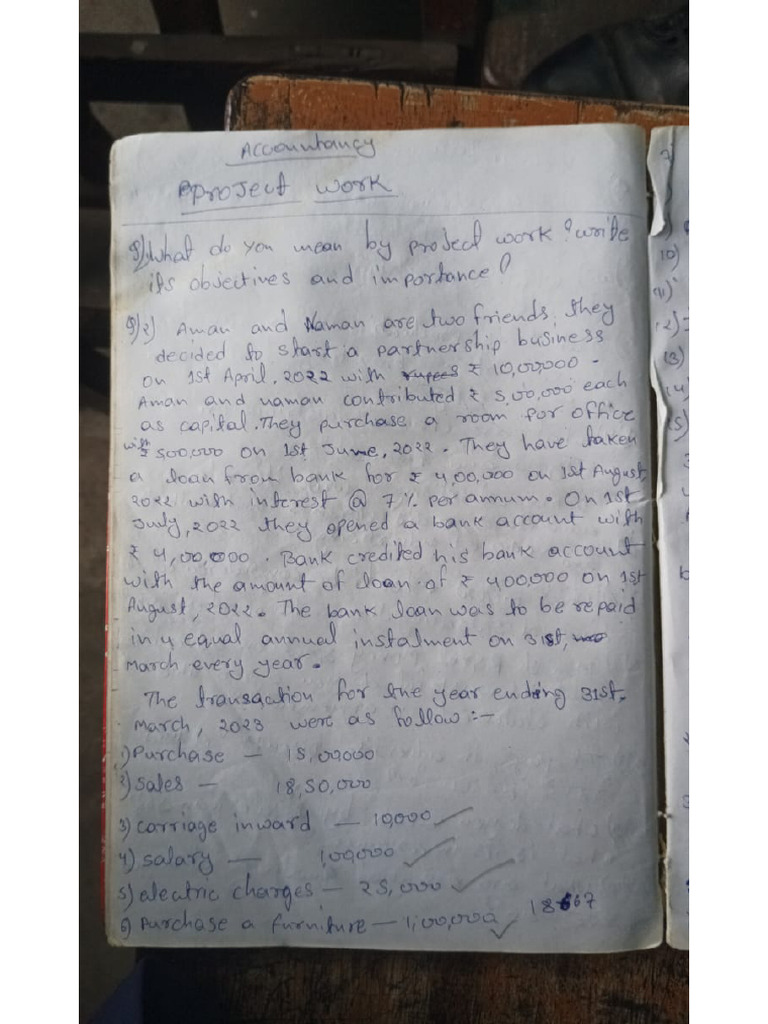 Accountancy
Project work
Q/1) What do you mean by project work? write
its objectives and importance?
Q/2) Aman and Naman are two friends, they
decided to start a partnership business
on 1st April, 2022 with rupees ₹ 10,00,000 -
Aman and naman contributed ₹ 5,00,000 each
as capital. They purchase a room for office
with ₹ 500,000 on 1st June, 2022. They have taken
a loan from bank for ₹ 4,00,000 on 1st August,
2022 with interest @ 7% per annum. On 1st
July, 2022 they opened a bank account with
₹ 4,00,000. Bank credited his bank account
with the amount of loan of ₹ 400,000 on 1st
August, 2022. The bank loan was to be repaid
in 4 equal annual instalment on 31st,
March every year.
The transaction for the year ending 31st
March, 2023 were as follow :-
1) Purchase — 15,00000
2) Sales — 18,50,000
3) carriage inward — 10,000
4) salary — 1,00,000
5) electric charges — 25,000
6) Purchase a furniture — 1,00,000
18667
10)
11)
12)
13)
14)
15)